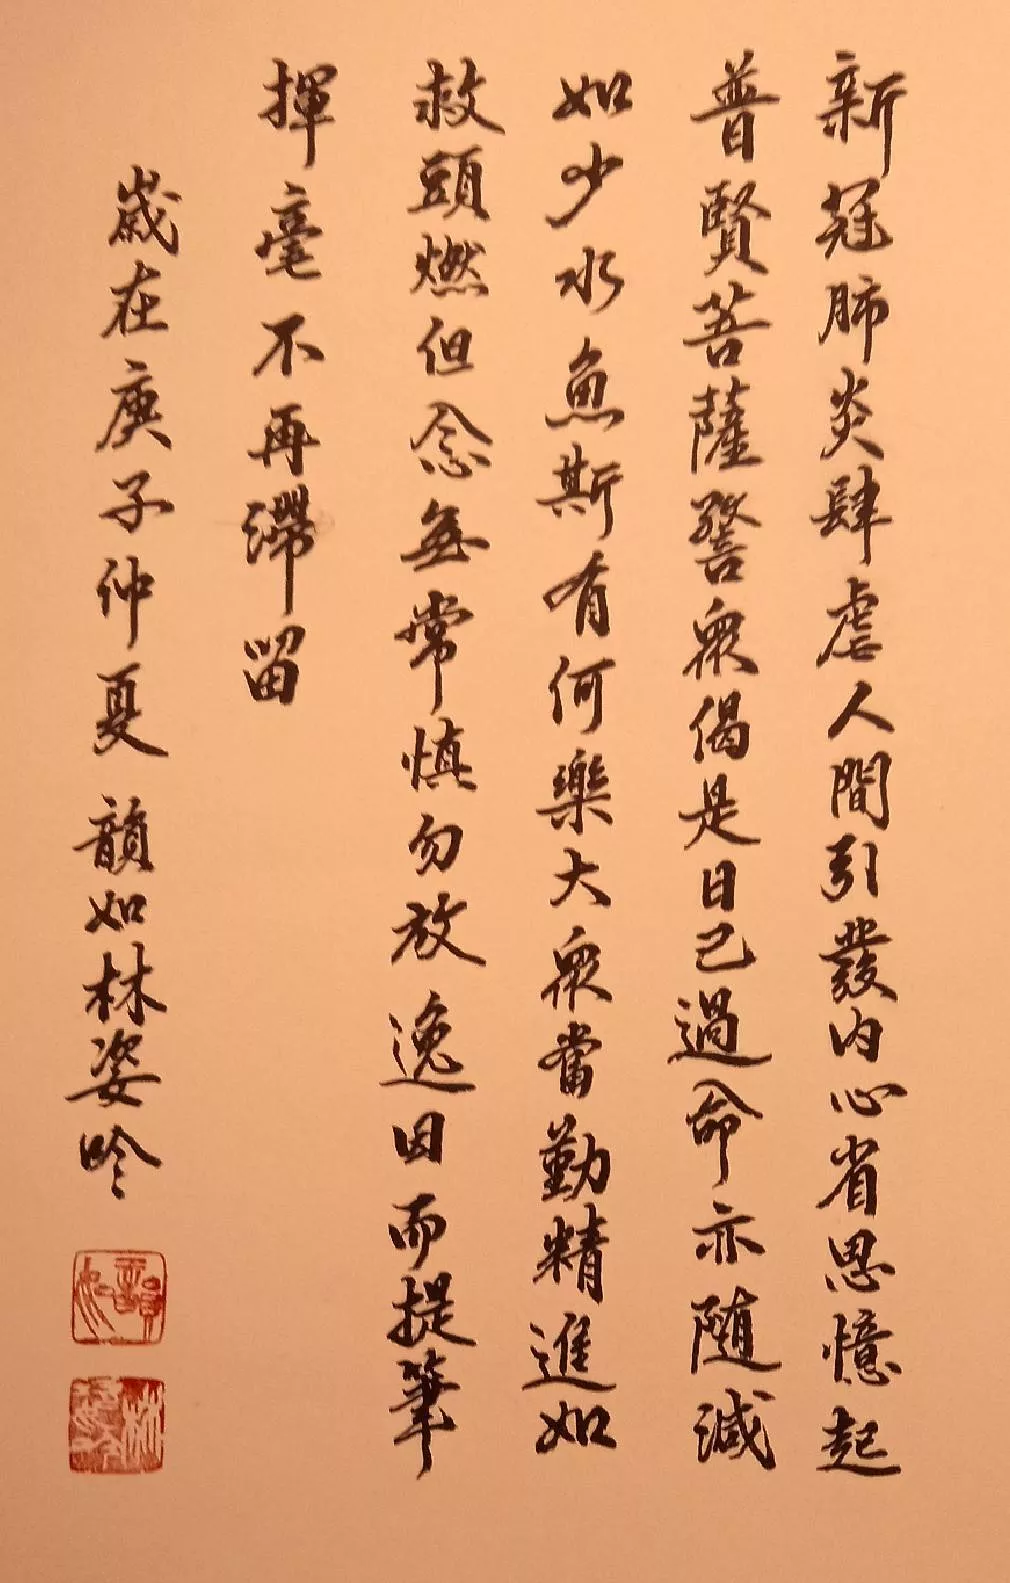 新冠肺炎肆虐人間引發內心省思憶起
普賢菩薩警眾偈是日已過命亦隨減
如少水魚斯有何樂大眾當勤精進如
救頭燃但念無常慎勿放逸因而提筆
揮毫不再滯留
歲在庚子仲夏 韻如林姿吟